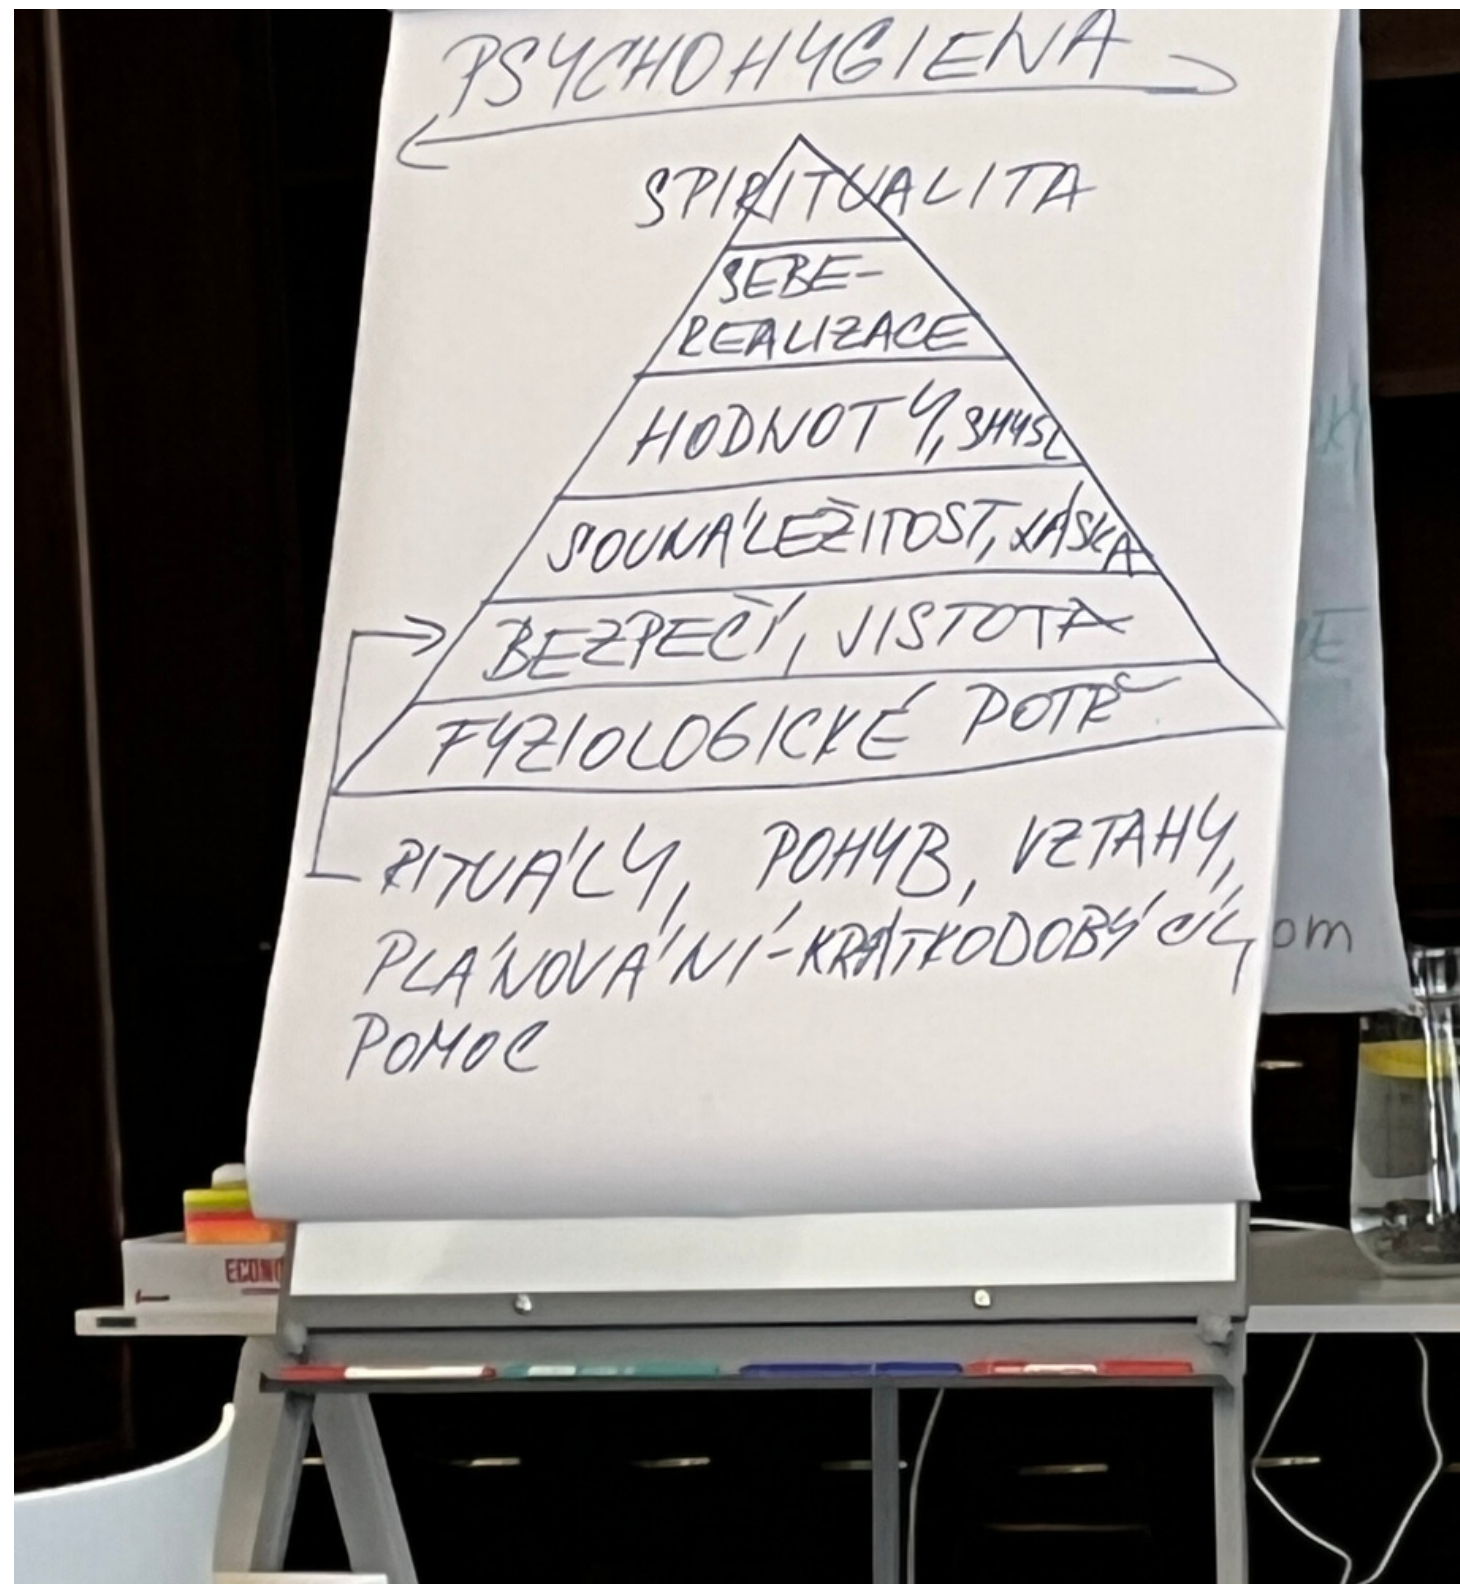 PSYCHOHYGIENA
SPIRITUALITA
SEBE-
REALIZACE
HODNOTY, SMYSL
SOUNÁLEŽITOST, LÁSKA
BEZPEČÍ, JISTOTA
FYZIOLOGICKÉ POTŘ
RITUÁLY, POHYB, VZTAHY,
PLÁNOVÁNÍ-KRÁTKODOBÝ CÍLY
POMOC
om
ECONO